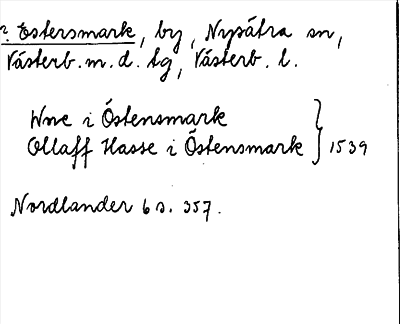 ? Estersmark, by, Nysätra sn,
Västerb. m. d. tg, Västerb. l.
Wne i Östensmark
Ollaff Hasse i Östensmark } 1539
Nordlander 6 s. 357.